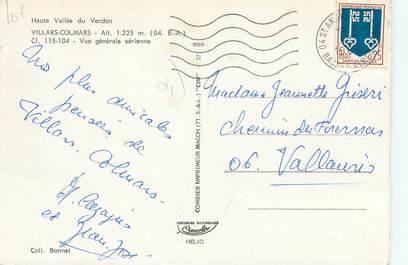 Haute Vallée du Verdon
VILLARS-COLMARS - Alt. 1.225 m. (04. B.-A.)
Cl. 115-104 - Vue générale aérienne
Nos plus amicales
pensées de
Villars. Colmars.
et Jean. José
Coll. Bonnet
COMBIER IMPRIMEUR MACON (71. S.-&-L.) "CIM"
COULEURS NATURELLES
Combier
HÉLIO
04 ST AN
REPUBLIQUE FRANCAISE
Madame Jeannette Griseri
Chemin des
06. Vallauris